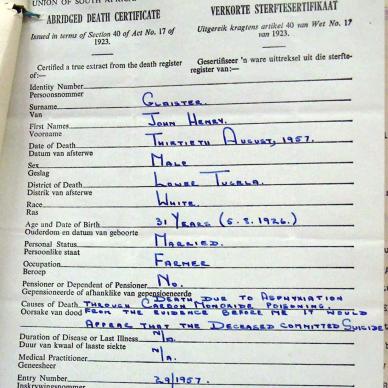 UNION OF SOUTH AFRICA
ABRIDGED DEATH CERTIFICATE
VERKORTE STERFTESERTIFIKAAT
Issued in terms of Section 40 of Act No. 17 of 1923.
Uitgereik kragtens artikel 40 van Wet No. 17 van 1923.
Certified a true extract from the death register of:—
Gesertifiseer 'n ware uittreksel uit die sterfteregister van:—
Identity Number
Persoonsnommer
Surname GLAISTER.
Van
First Names JOHN HENRY.
Voorname
Date of Death THIRTIETH AUGUST, 1957.
Datum van afsterwe
Sex MALE
Geslag
District of Death LOWER TUGELA.
Distrik van afsterwe
Race WHITE.
Ras
Age and Date of Birth 31 YEARS (5.8.1926.)
Ouderdom en datum van geboorte
Personal Status MARRIED.
Persoonlike staat
Occupation FARMER
Beroep
Pensioner or Dependent of Pensioner NO.
Gepensioeneerde of afhanklike van gepensioeneerde
DEATH DUE TO ASPHYXIATION
Causes of Death THROUGH CARBON MONOXIDE POISONING.
Oorsake van dood FROM THE EVIDENCE BEFORE ME IT WOULD
APPEAR THAT THE DECEASED COMMITTED SUICIDE
Duration of Disease or Last Illness N/A.
Duur van kwaal of laaste siekte
Medical Practitioner N/A.
Geneesheer
Entry Number 39/1957.
Inskrywingsnommer